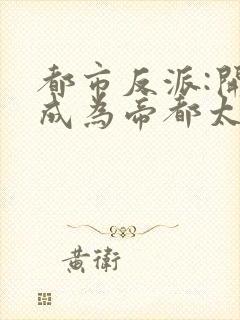 都市反派:開
成為帝都太
黃衛